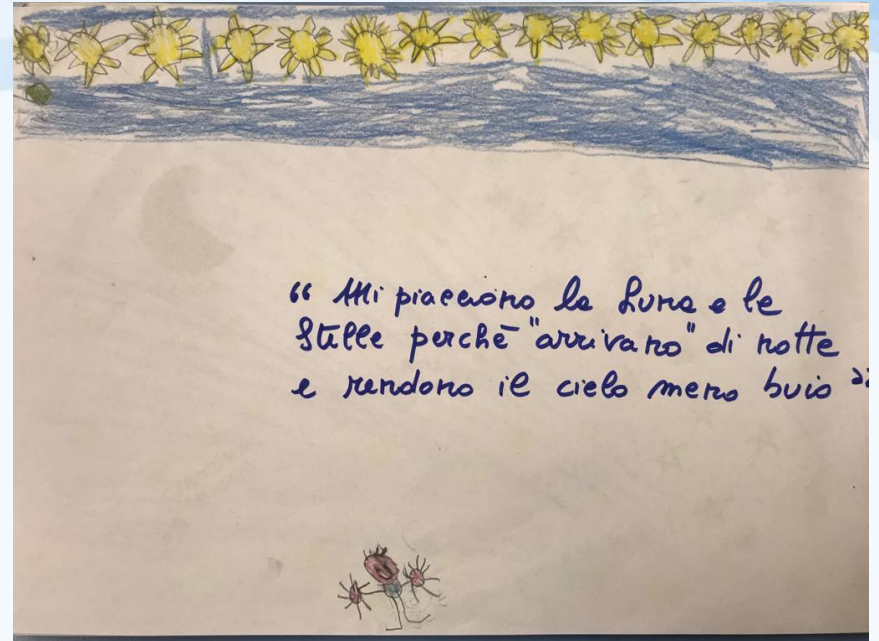 “ Mi piacciono la Luna e le
Stelle perchè "arrivano" di notte
e rendono il cielo meno buio ”